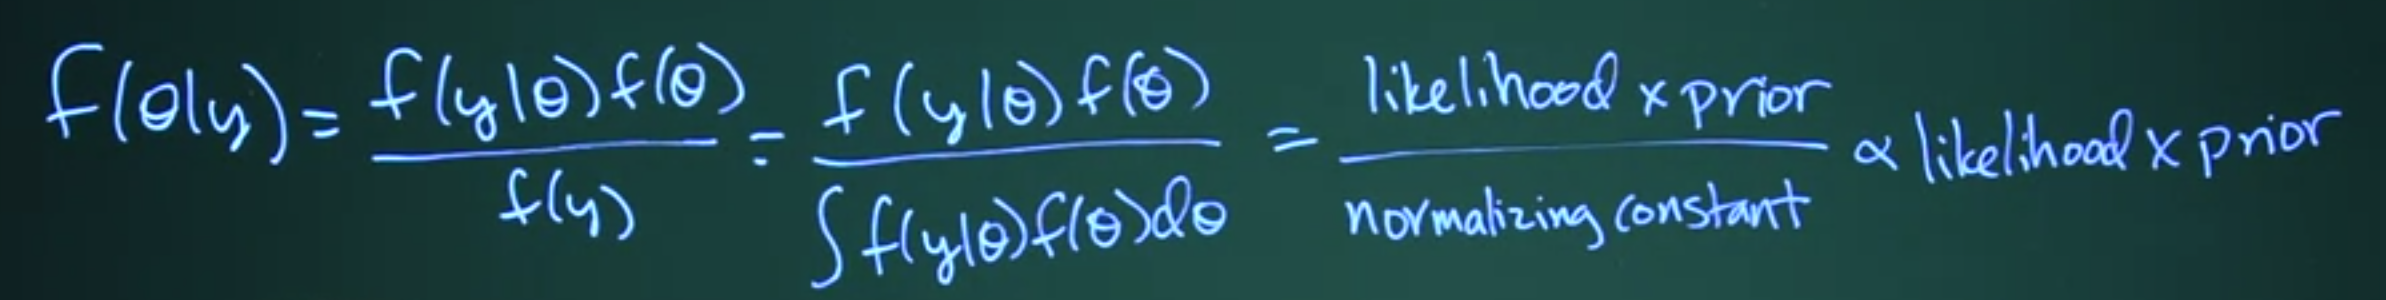 f(θ|y) = f(y|θ)f(θ) / f(y) = f(y|θ)f(θ) / ∫f(y|θ)f(θ)dθ = likelihood x prior / normalizing constant ∝ likelihood x prior